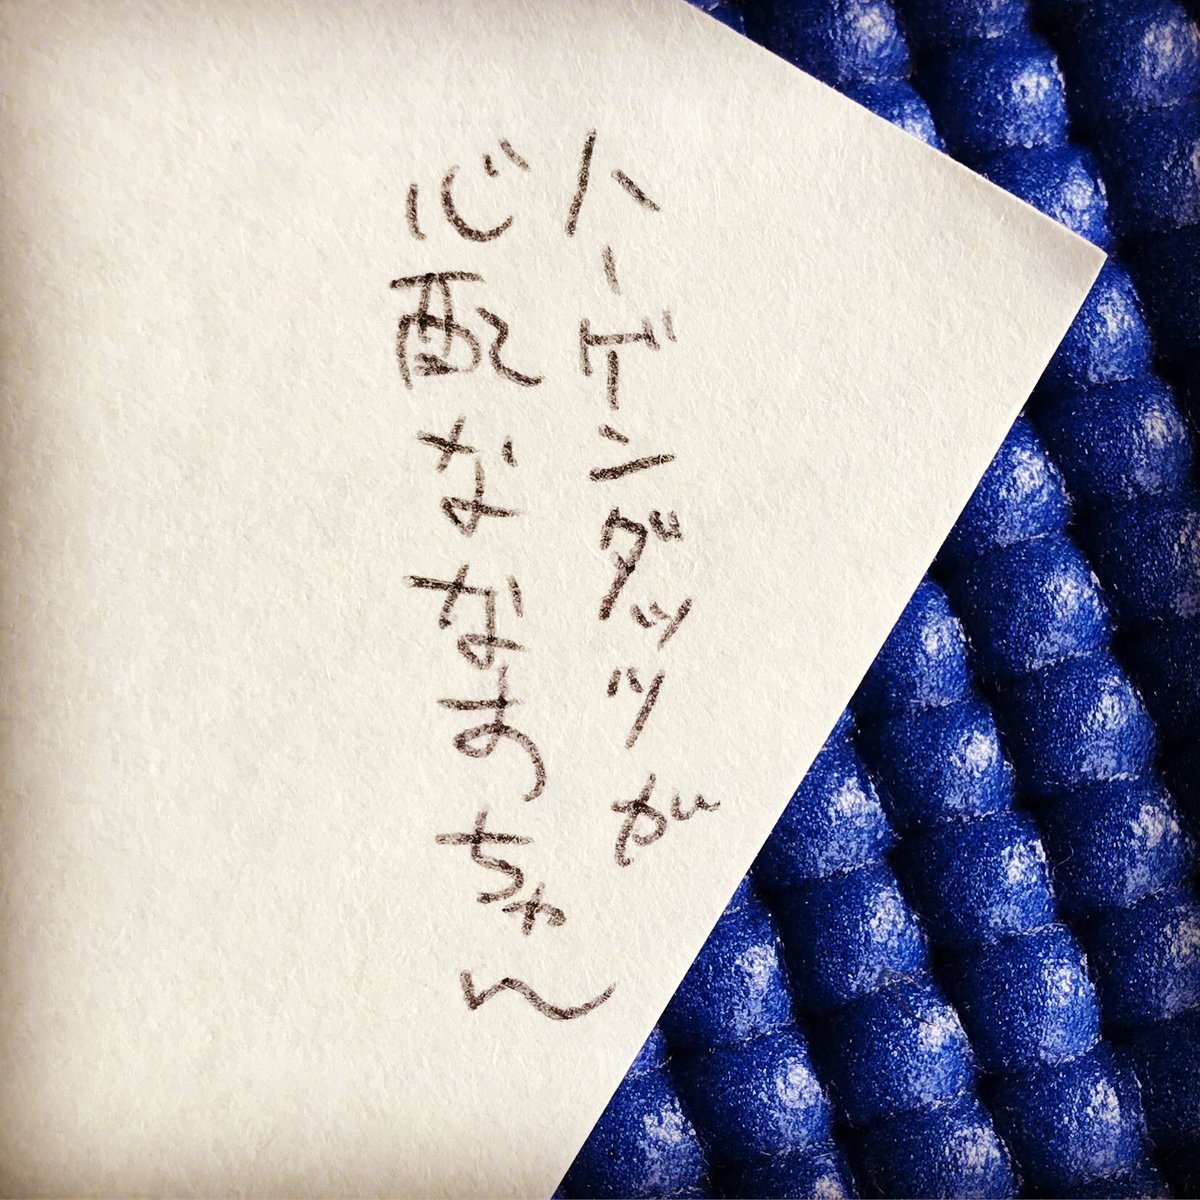 ハーゲンダッツが
心配なおみちゃん